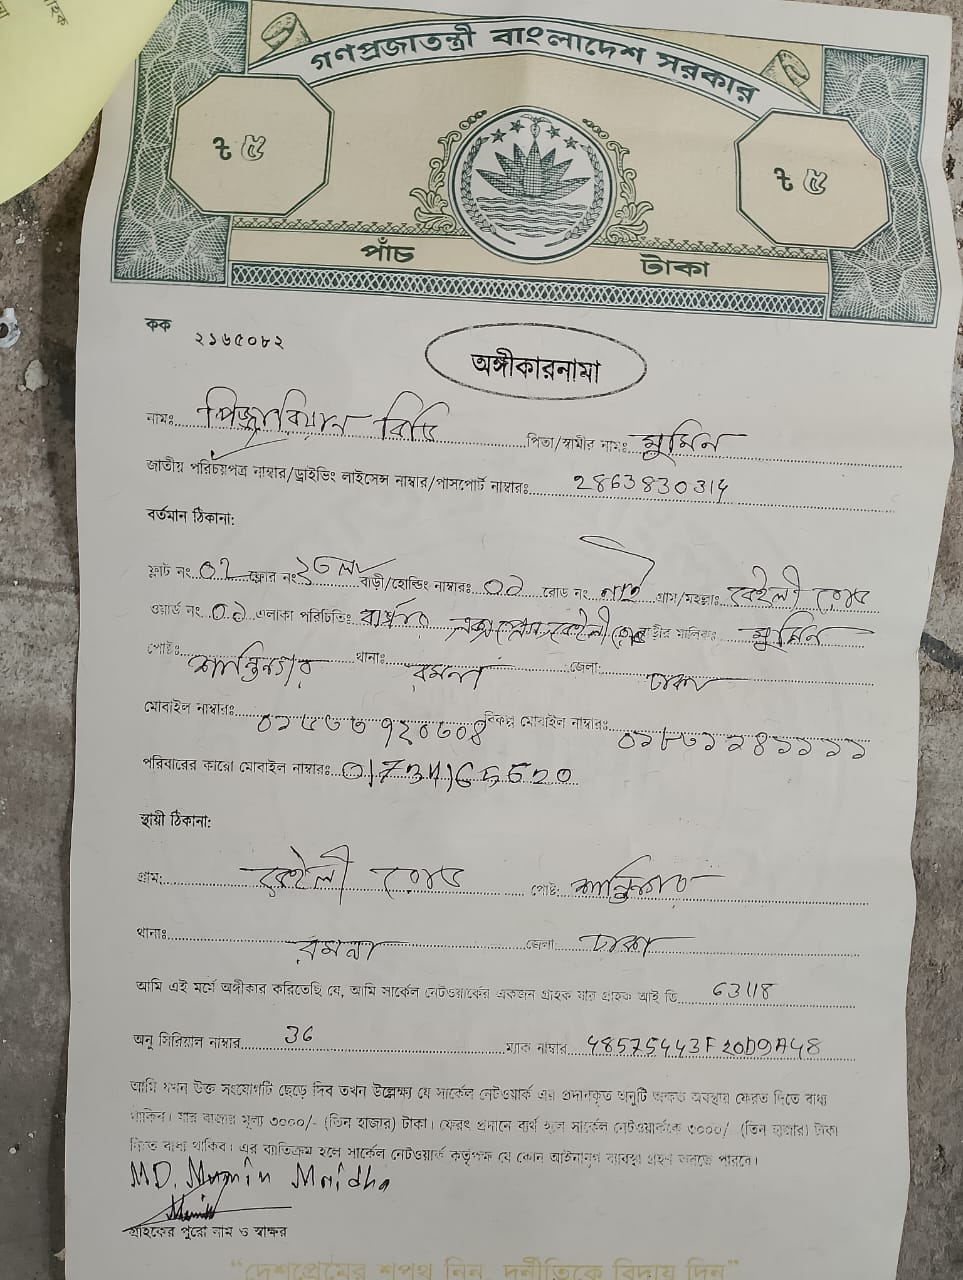 গণপ্রজাতন্ত্রী বাংলাদেশ সরকার
৳ ৫ ৳ ৫
পাঁচ টাকা
কক ২১৬৫০৮২
অঙ্গীকারনামা
নামঃ পিজ্জাবিয়ান বিডি পিতা/স্বামীর নামঃ মুমিন
জাতীয় পরিচয়পত্র নাম্বার/ড্রাইভিং লাইসেন্স নাম্বার/পাসপোর্ট নাম্বারঃ 2863830314
বর্তমান ঠিকানা:
ফ্লাট নং 02 ফ্লোর নং বাড়ী/হোল্ডিং নাম্বারঃ ০১ রোড নং নাই গ্রাম/মহল্লাঃ বেইলী রোড
ওয়ার্ড নং এলাকা পরিচিতিঃ বেইলী রোড বাড়ীর মালিকঃ মুমিন
পোষ্টঃ শান্তিনগর থানাঃ রমনা জেলা: ঢাকা
মোবাইল নাম্বারঃ বিকল্প মোবাইল নাম্বারঃ
পরিবারের কারো মোবাইল নাম্বারঃ
স্থায়ী ঠিকানা:
গ্রাম: বেইলী রোড পোষ্ট: শান্তিনগর
থানাঃ রমনা জেলা ঢাকা
আমি এই মর্মে অঙ্গীকার করিতেছি যে, আমি সার্কেল নেটওয়ার্কের একজন গ্রাহক যার গ্রাহক আই ডি 63118
অনু সিরিয়াল নাম্বার 36 ম্যাক নাম্বার 48575443F20D9A48
আমি যখন উক্ত সংযোগটি ছেড়ে দিব তখন উল্লেক্ষ্য যে সার্কেল নেটওয়ার্ক এর প্রদানকৃত অনুটি অক্ষত অবস্থায় ফেরত দিতে বাধ্য
থাকিব। যার বাজার মূল্য ৩০০০/- (তিন হাজার) টাকা। ফেরৎ প্রদানে ব্যর্থ হলে সার্কেল নেটওয়ার্ককে ৩০০০/ (তিন হাজার) টাকা
দিতে বাধ্য থাকিব। এর ব্যতিক্রম হলে সার্কেল নেটওয়ার্ক কর্তৃপক্ষ যে কোন আইনানুগ ব্যবস্থা গ্রহণ করতে পারবে।
MD. Mumin Mridha
গ্রাহকের পুরো নাম ও স্বাক্ষর
“দেশপ্রেমের শপথ নিন, দুর্নীতিকে বিদায় দিন”